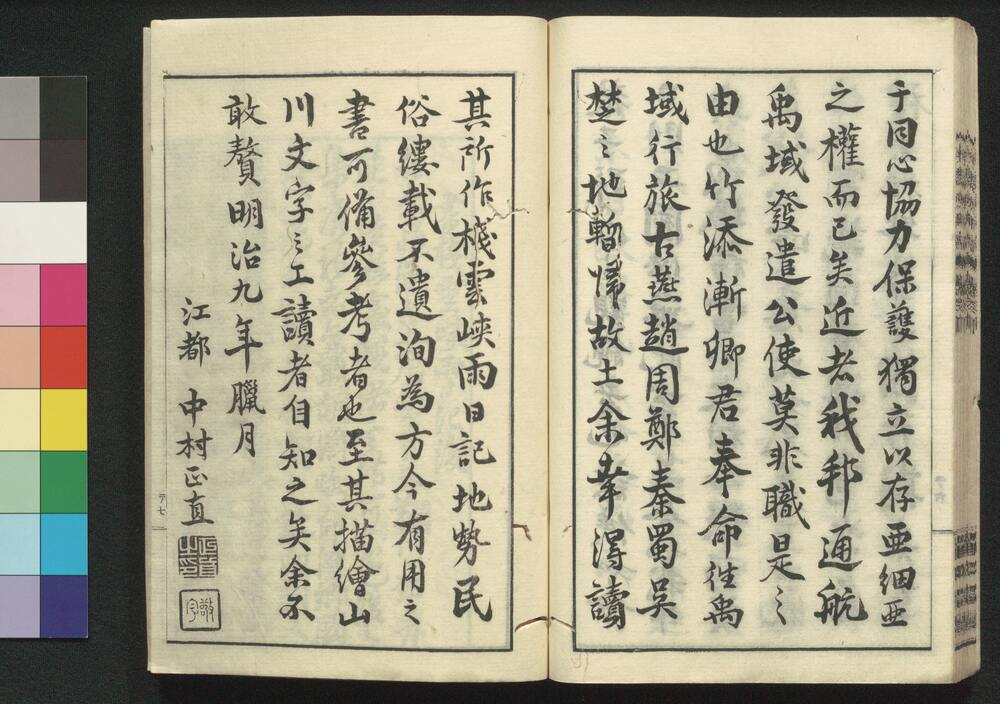 于同心協力保護獨立以存亜細亜
之權而已矣近者我邦通航
禹域發遣公使莫非職是之
由也竹添漸卿君奉命往禹
域行旅古燕趙周鄭秦蜀吳
楚之地暫帰故土余幸得讀
其所作棧雲峽雨日記地勢民
俗縷載不遺洵為方今有用之
書可備參考者也至其描繪山
川文字之工讀者自知之矣余不
敢贅明治九年臘月
江都 中村正直
敬宇
テ七